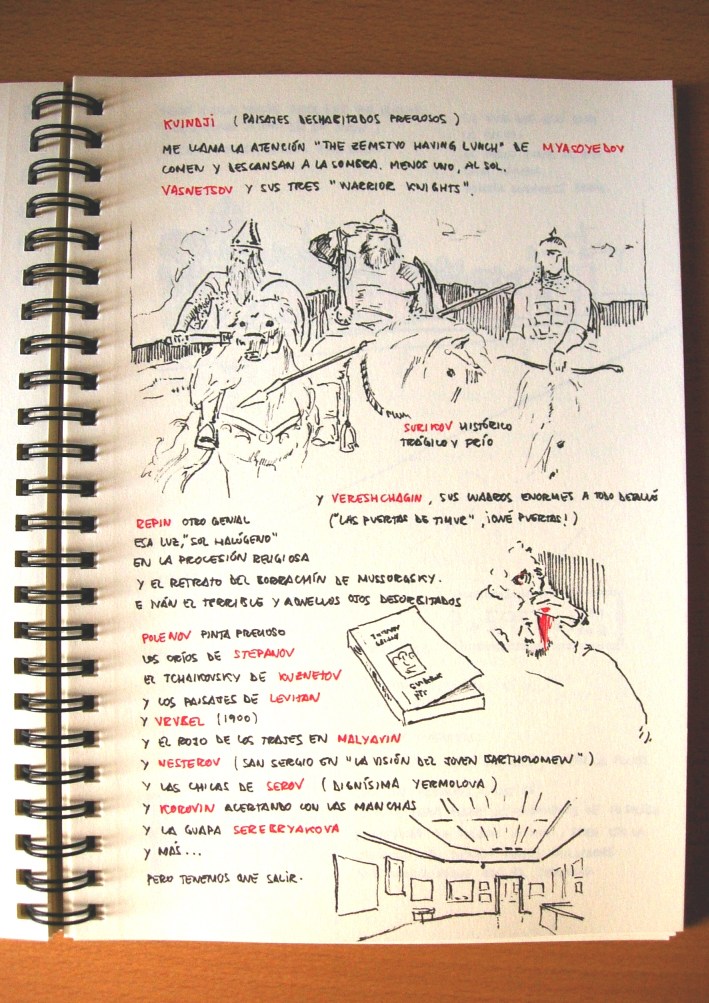 KUINDJI (PAISAJES DESHABITADOS PRECIOSOS)
ME LLAMA LA ATENCIÓN "THE ZEMSTVO HAVING LUNCH" DE MYASOYEDOV
COMEN Y DESCANSAN A LA SOMBRA. MENOS UNO, AL SOL.
VASNETSOV Y SUS TRES "WARRIOR KNIGHTS".
SURIKOV HISTÓRICO
TRÁGICO Y FRÍO
Y VERESHCHAGIN, SUS CUADROS ENORMES A TODO DETALLE
("LAS PUERTAS DE TIMUR", ¡QUÉ PUERTAS!)
REPIN OTRO GENIAL
ESA LUZ, "SOL HALÓGENO"
EN LA PROCESIÓN RELIGIOSA
Y EL RETRATO DEL BORRACHÍN DE MUSSORGSKY.
E IVÁN EL TERRIBLE Y AQUELLOS OJOS DESORBITADOS
POLENOV PINTA PRECIOSO
LOS DE STEPANOV
EL TCHAIKOVSKY DE KUZNETOV
Y LOS PAISAJES DE LEVITAN
Y VRUBEL (1900)
Y EL ROJO DE LOS TRAJES EN MALYAVIN
Y NESTEROV (SAN SERGIO EN "LA VISIÓN DEL JOVEN BARTHOLOMEW")
Y LAS CHICAS DE SEROV (DIGNÍSIMA YERMOLOVA)
Y KOROVIN ACERTANDO CON LAS MANCHAS
Y LA GUAPA SEREBRYAKOVA
Y MÁS...
PERO TENEMOS QUE SALIR.